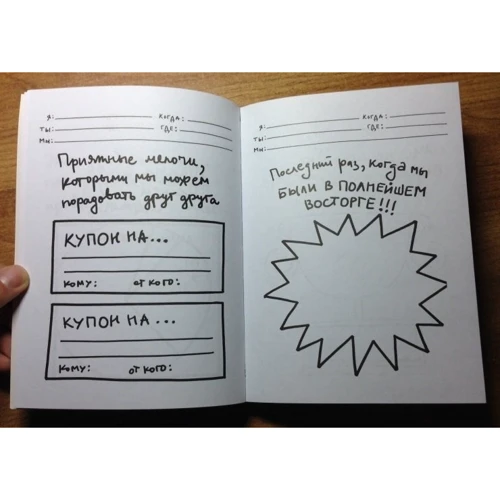 Я: КОГДА:
ТЫ: ГДЕ:
МЫ:
Приятные мелочи,
которыми мы можем
порадовать друг друга
КУПОН НА...
КОМУ: ОТ КОГО:
КУПОН НА...
КОМУ: ОТ КОГО:
Я: КОГДА:
ТЫ: ГДЕ:
МЫ:
Последний раз, когда мы
БЫЛИ В ПОЛНЕЙШЕМ
ВОСТОРГЕ!!!